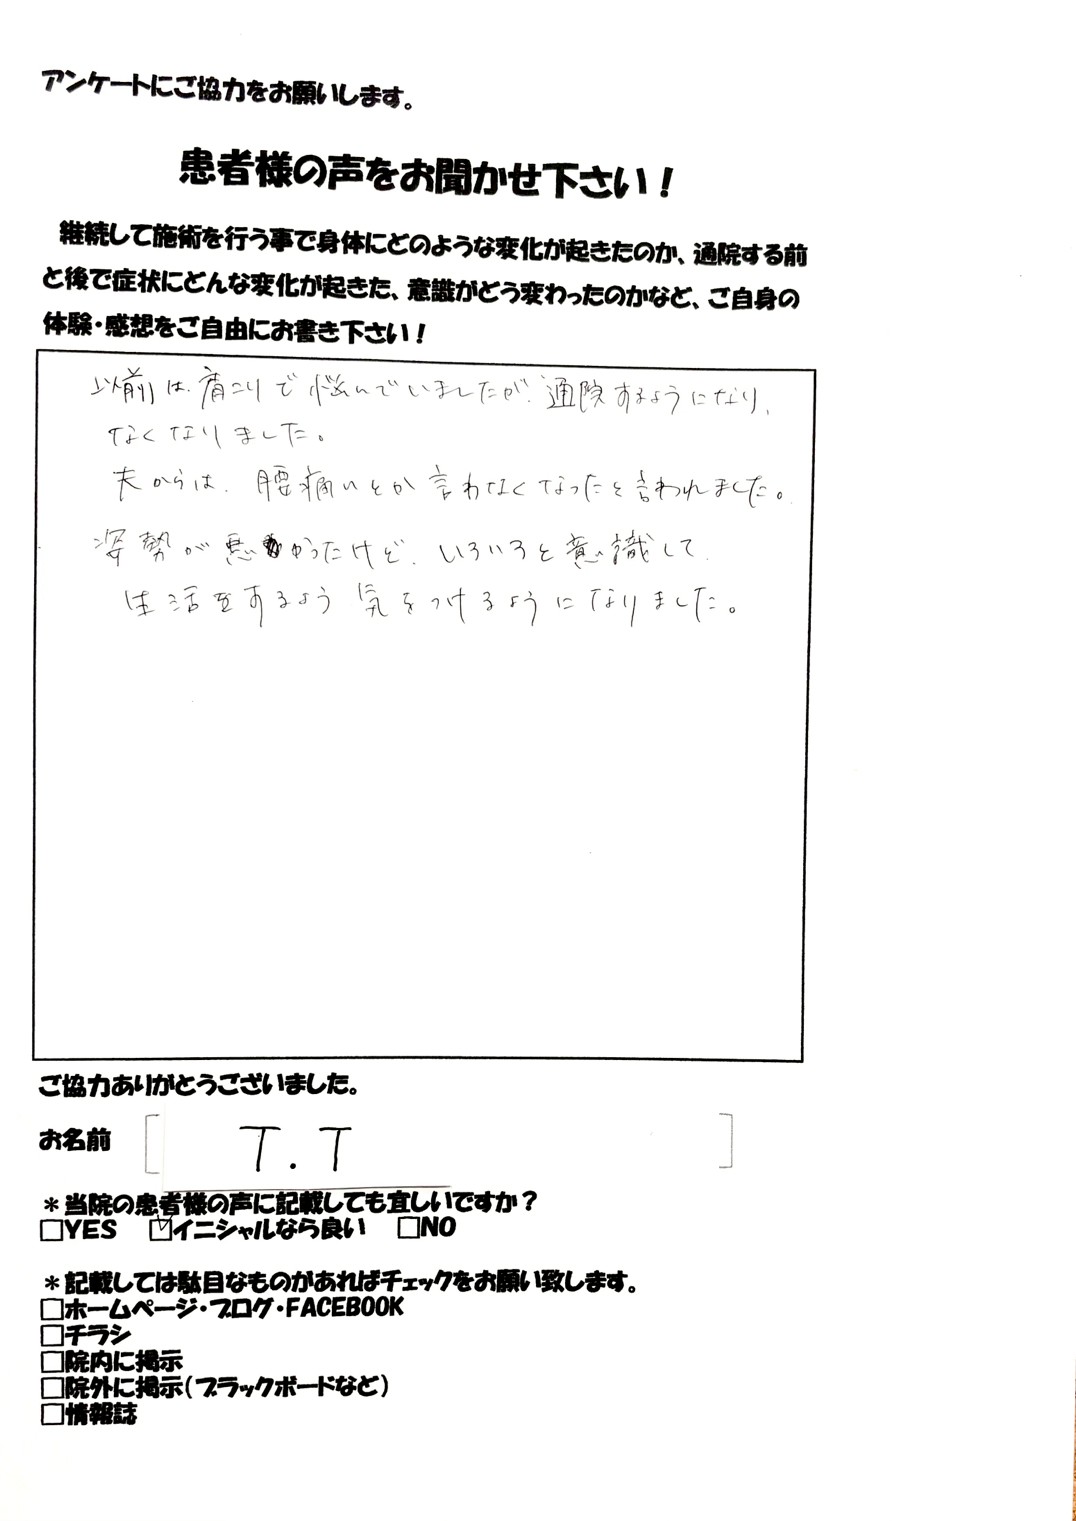 アンケートにご協力をお願いします。
患者様の声をお聞かせ下さい！
継続して施術を行う事で身体にどのような変化が起きたのか、通院する前
と後で症状にどんな変化が起きた、意識がどう変わったのかなど、ご自身の
体験・感想をご自由にお書き下さい！
以前は、肩こりで悩んでいましたが、通院するようになり、
なくなりました。
夫からは、腰痛いとか言わなくなったと言われました。
姿勢が悪かったけど、いろいろと意識して
生活をするよう気をつけるようになりました。
ご協力ありがとうございました。
お名前 [ T.T ]
＊当院の患者様の声に記載しても宜しいですか？
□YES ☑イニシャルなら良い □NO
＊記載しては駄目なものがあればチェックをお願い致します。
□ホームページ・ブログ・FACEBOOK
□チラシ
□院内に掲示
□院外に掲示（ブラックボードなど）
□情報誌